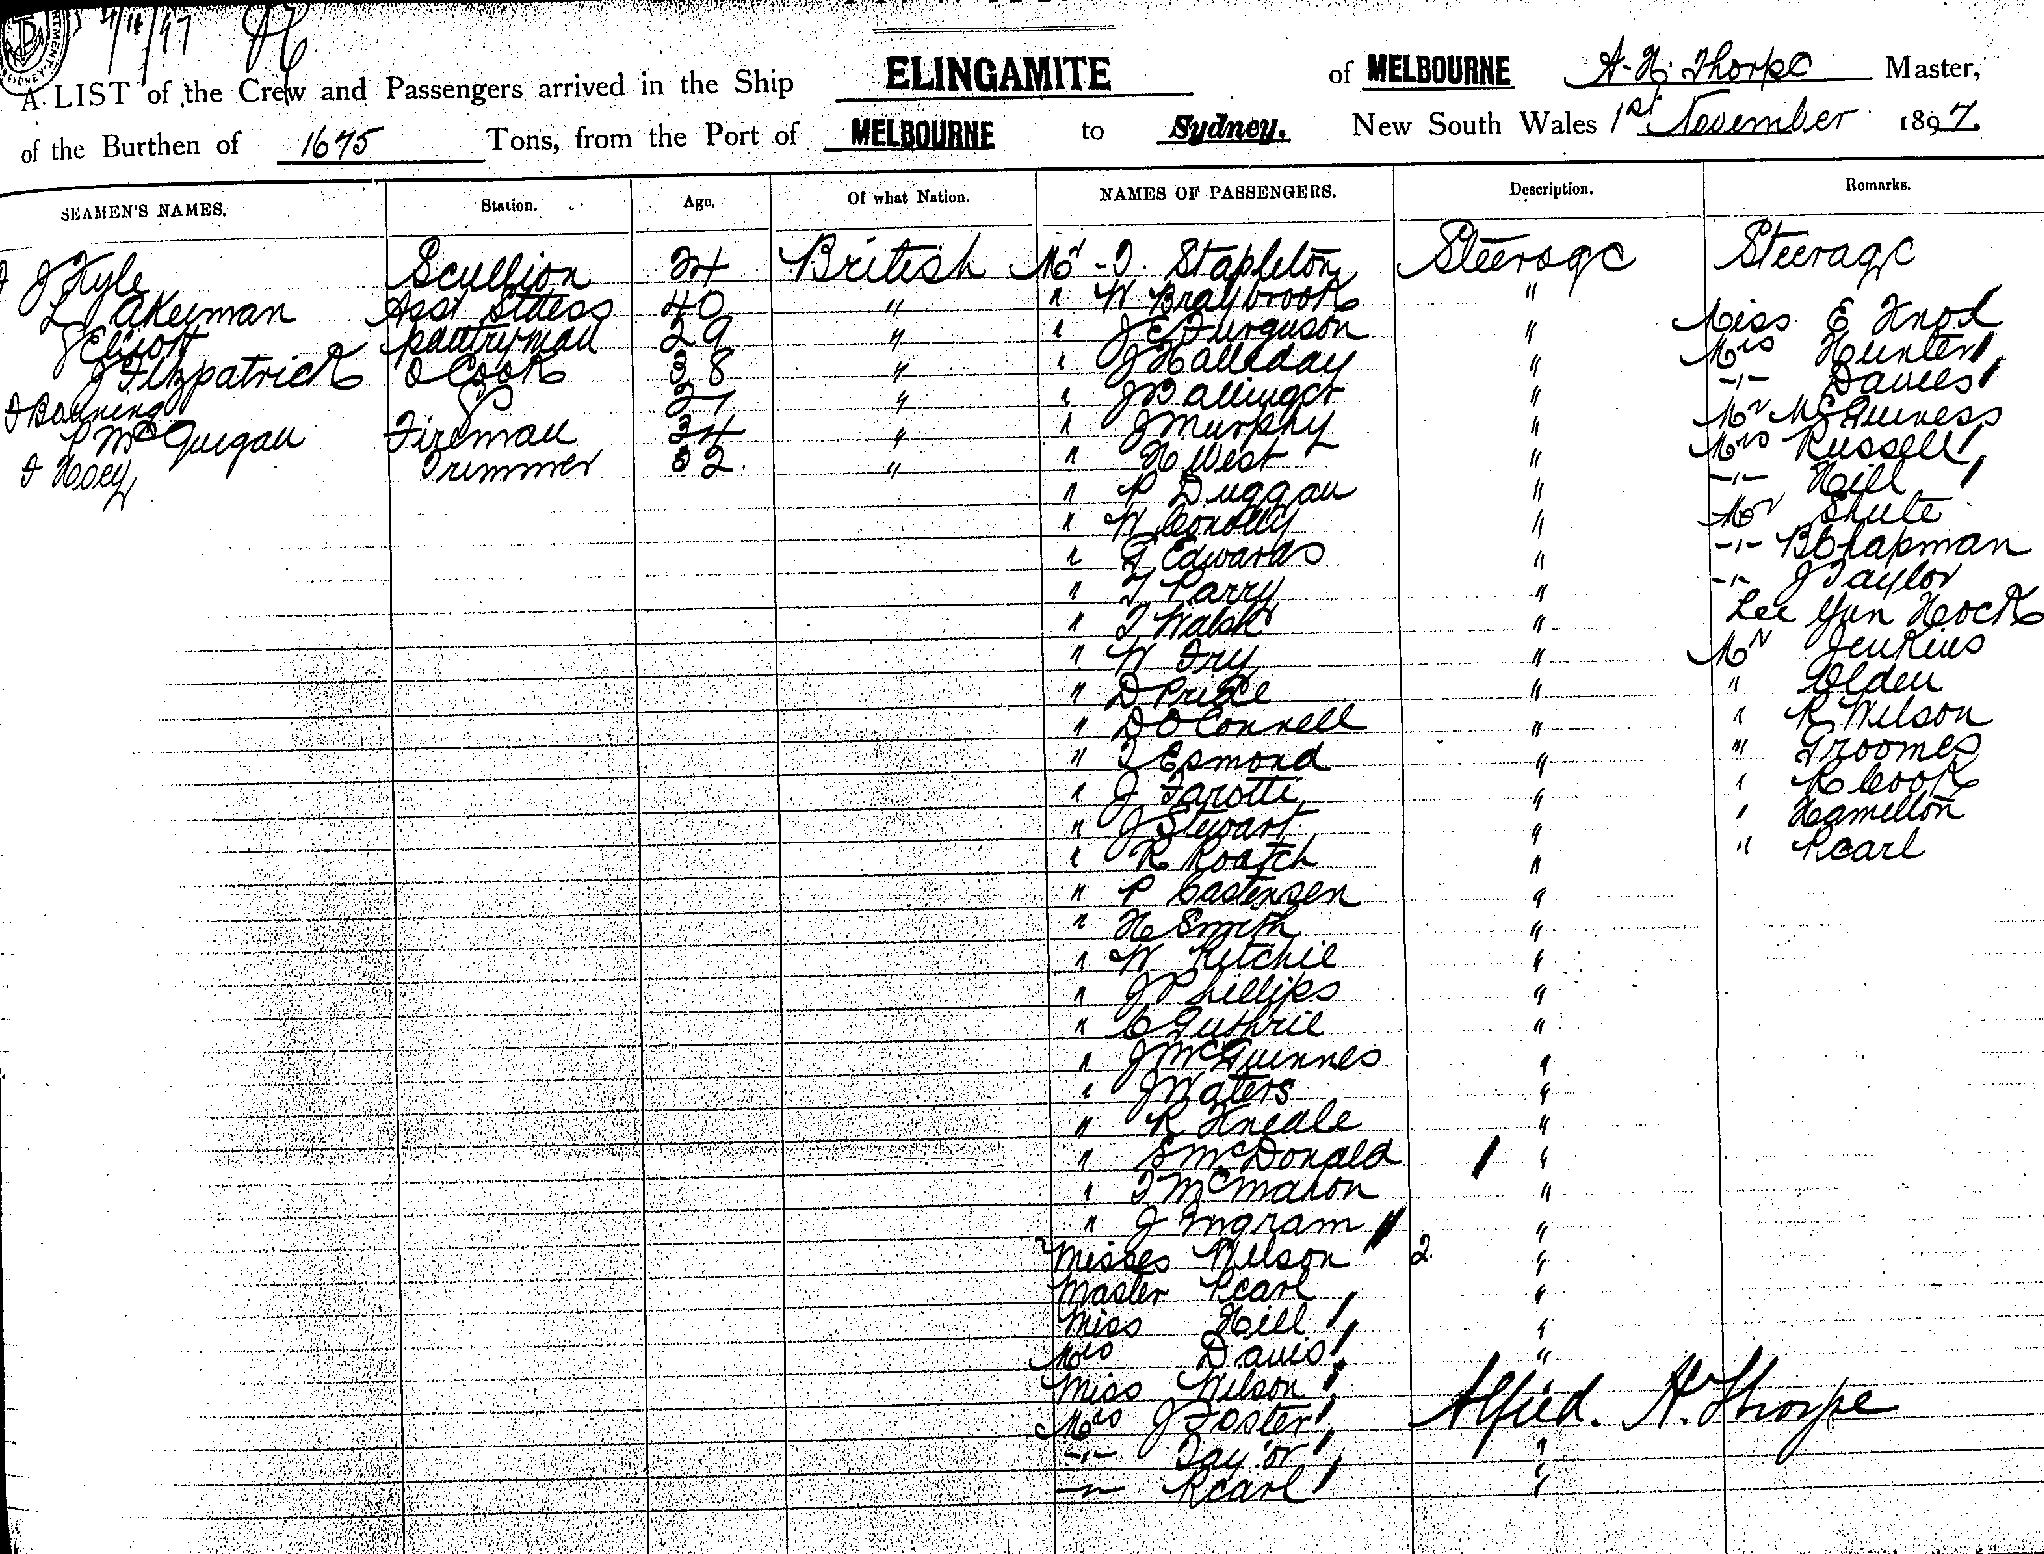 4/11/97
A LIST of the Crew and Passengers arrived in the Ship ELINGAMITE of MELBOURNE A. H. Thorpe Master,
of the Burthen of 1675 Tons, from the Port of MELBOURNE to Sydney, New South Wales 1st November 1897
SEAMEN'S NAMES. Station. Age. Of what Nation. NAMES OF PASSENGERS. Description. Remarks.
J Kyle Scullion 24 British Mr T. Stapleton Steerage Steerage
L Akerman Asst Stdess 40 " " W Braybrook "
J Eliott pantryman 29 " " J E Ferguson " Miss E Knox
J Fitzpatrick Cook 38 " " J Halladay " Mrs Hunter
F Banning 27 " " J Ballinger " -"- Davies
P McGuigan Fireman 34 " " J Murphy " Mr McGuiness
F Hoey Trimmer 32 " " H West " Mrs Russell
" P Duggan " -"- Hill
" W Conolly " Mr Shute
" F Edwards " -"- B Chapman
" T Parry " -"- J Taylor
" T Walsh " Lee Yun Hock
" W Fry " Mr Jenkins
" D Price " " Olden
" D O Connell " " R Wilson
" T Esmond " " Groomes
" J Farotti " " R Cook
" J Stewart " " Hamilton
" R Roatch " " Pearl
" P Castensen "
" H Smith "
" W Ritchie "
" J Phillips "
" C Guthrie "
" J McGuinnes "
" J Waters "
" R Kneale "
" S McDonald "
" T McMahon "
" J Ingram "
Misses Wilson 2 "
Master Pearl "
Miss Hill "
Mrs Davis "
Miss Wilson Alfred. H. Thorpe
Mrs J Foster
-"- Taylor "
-"- Pearl "